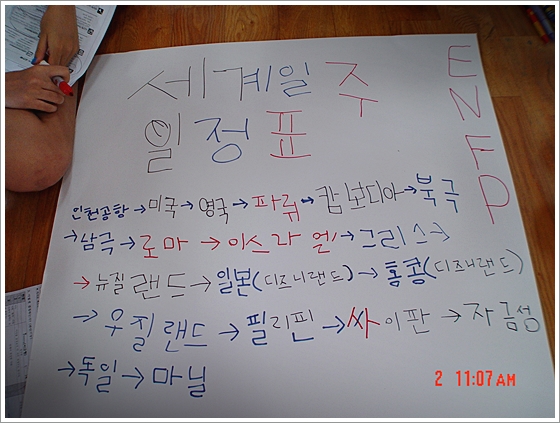 세계일주
일정표
ENFP
인천공항→미국→영국→파뤼→캄보디아→북극
→남극→로마→이스라엘→그리스→
→뉴질랜드→일본(디즈니랜드)→홍콩(디즈니랜드)
→우질랜드→필리핀→싸이판→자금성
→독일→마닐
2 11:07AM